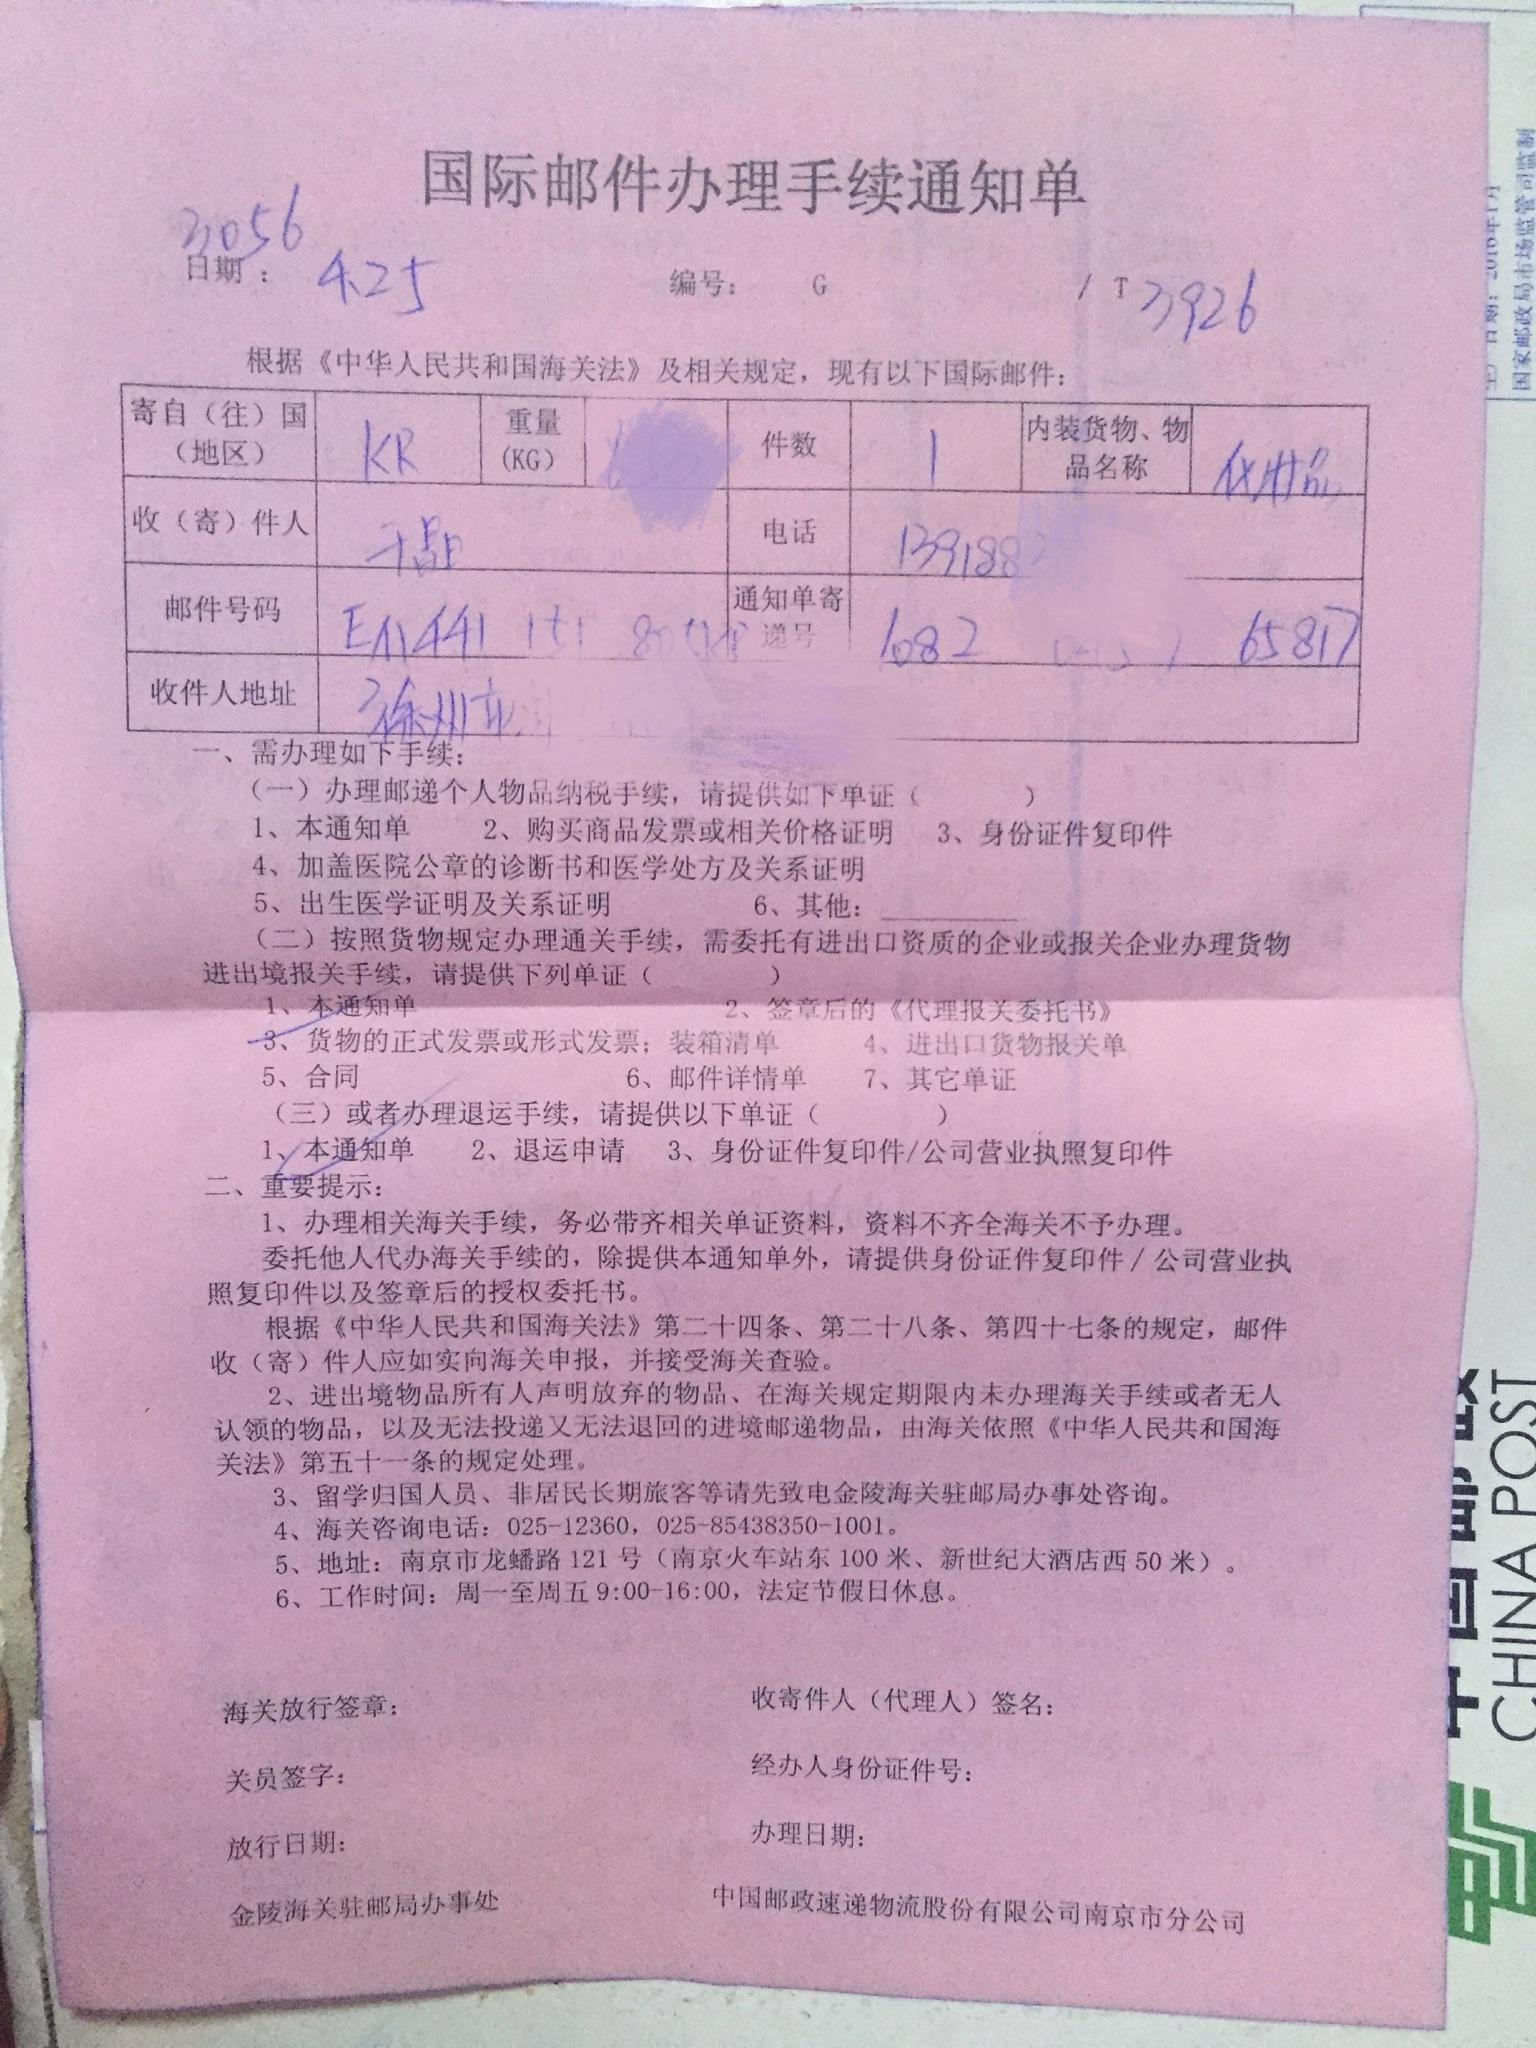 国际邮件办理手续通知单
3056
日期： 4.25 编号： G / T 3926
根据《中华人民共和国海关法》及相关规定，现有以下国际邮件：
寄自（往）国（地区） KR 重量(KG) 件数 1 内装货物、物品名称 化妆品
收（寄）件人 电话 139188
邮件号码 441 通知单寄递号 1082 65817
收件人地址 徐州市
一、需办理如下手续：
（一）办理邮递个人物品纳税手续，请提供如下单证（ ）
1、本通知单 2、购买商品发票或相关价格证明 3、身份证件复印件
4、加盖医院公章的诊断书和医学处方及关系证明
5、出生医学证明及关系证明 6、其他：
（二）按照货物规定办理通关手续，需委托有进出口资质的企业或报关企业办理货物
进出境报关手续，请提供下列单证（ ）
1、本通知单 2、签章后的《代理报关委托书》
3、货物的正式发票或形式发票；装箱清单 4、进出口货物报关单
5、合同 6、邮件详情单 7、其它单证
（三）或者办理退运手续，请提供以下单证（ ）
1、本通知单 2、退运申请 3、身份证件复印件/公司营业执照复印件
二、重要提示：
1、办理相关海关手续，务必带齐相关单证资料，资料不齐全海关不予办理。
委托他人代办海关手续的，除提供本通知单外，请提供身份证件复印件/公司营业执
照复印件以及签章后的授权委托书。
根据《中华人民共和国海关法》第二十四条、第二十八条、第四十七条的规定，邮件
收（寄）件人应如实向海关申报，并接受海关查验。
2、进出境物品所有人声明放弃的物品、在海关规定期限内未办理海关手续或者无人
认领的物品，以及无法投递又无法退回的进境邮递物品，由海关依照《中华人民共和国海
关法》第五十一条的规定处理。
3、留学归国人员、非居民长期旅客等请先致电金陵海关驻邮局办事处咨询。
4、海关咨询电话：025-12360，025-85438350-1001。
5、地址：南京市龙蟠路121号（南京火车站东100米、新世纪大酒店西50米）。
6、工作时间：周一至周五9:00-16:00，法定节假日休息。
海关放行签章： 收寄件人（代理人）签名：
关员签字： 经办人身份证件号：
放行日期： 办理日期：
金陵海关驻邮局办事处 中国邮政速递物流股份有限公司南京市分公司
国家邮政局市场监管司监制
CHINA POST